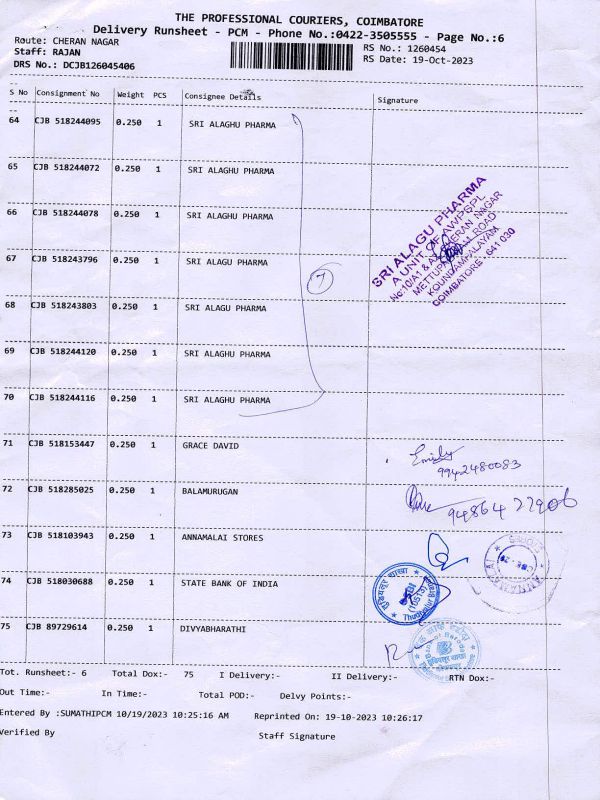 THE PROFESSIONAL COURIERS, COIMBATORE
Delivery Runsheet - PCM - Phone No.:0422-3505555 - Page No.:6
Route: CHERAN NAGAR
RS No.: 1260454
Staff: RAJAN
RS Date: 19-Oct-2023
DRS No.: DCJB126045406
S No Consignment No Weight PCS Consignee Details Signature
64 CJB 518244095 0.250 1 SRI ALAGHU PHARMA
65 CJB 518244072 0.250 1 SRI ALAGHU PHARMA
66 CJB 518244078 0.250 1 SRI ALAGHU PHARMA
67 CJB 518243796 0.250 1 SRI ALAGU PHARMA
68 CJB 518243803 0.250 1 SRI ALAGU PHARMA
69 CJB 518244120 0.250 1 SRI ALAGHU PHARMA
70 CJB 518244116 0.250 1 SRI ALAGHU PHARMA
7
SRI ALAGU PHARMA
A UNIT OF AWPSPL
CHERAN NAGAR
ROAD
KOUNDAMPALAYAM
COIMBATORE - 641 030
71 CJB 518153447 0.250 1 GRACE DAVID
9942480083
72 CJB 518285025 0.250 1 BALAMURUGAN
94864 22906
73 CJB 518103943 0.250 1 ANNAMALAI STORES
74 CJB 518030688 0.250 1 STATE BANK OF INDIA
75 CJB 89729614 0.250 1 DIVYABHARATHI
Bank of Baroda
Tot. Runsheet:- 6 Total Dox:- 75 I Delivery:- II Delivery:- RTN Dox:-
Out Time:- In Time:- Total POD:- Delvy Points:-
Entered By :SUMATHIPCM 10/19/2023 10:25:16 AM Reprinted On: 19-10-2023 10:26:17
Verified By Staff Signature